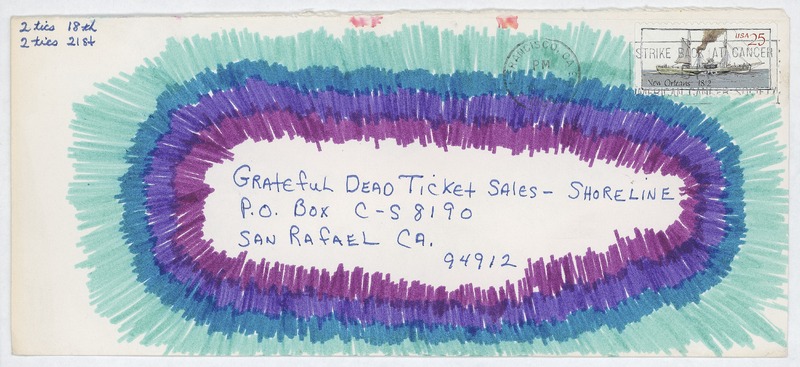 2 tics 18th
2 tics 21st
FRANCISCO, CA
PM
USA 25
STRIKE BACK AT CANCER
New Orleans 1812
AMERICAN CANCER SOCIETY
GRATEFUL DEAD TICKET SALES – SHORELINE
P.O. BOX C-S 8190
SAN RAFAEL CA.
94912